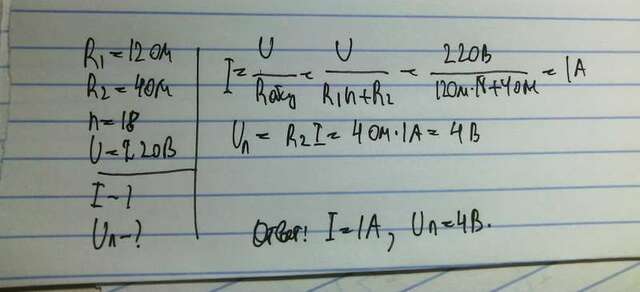 R₁=12Ом
R₂=4Ом
n=18
U=220В
I-?
Uл-?
I= U/Rобщ = U/(R₁n+R₂) = 220В/(12Ом·18+4Ом) =1А
Uл = R₂I= 4Ом·1А=4В
Ответ: I=1А, Uл=4В.